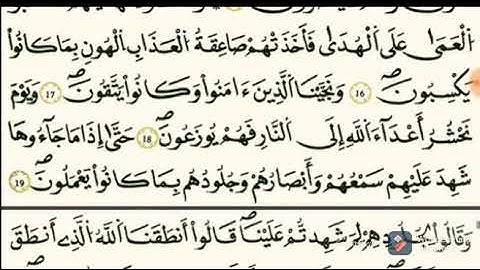 اَلْعَمَىٰ عَلَى اَلْهُدَىٰ فَأَخَذَتْهُمْ صَاعِقَةُ اُلْعَذَابِ اِلْهُونِ بِمَا كَانُواْ
يَكْسِبُونَۖ 16 وَنَجَّيْنَا اَلذِينَ ءَامَنُواْ وَكَانُواْ يَتَّقُونَۖ 17 وَيَوْمَ
نَحْشُرُ أَعْدَآءَ اَللَّهِ إِلَى اَلنَّارِ فَهُمْ يُوزَعُونَۖ 18 حَتَّىٰ إِذَا مَا جَآءُوهَا
شَهِدَ عَلَيْهِمْ سَمْعُهُمْ وَأَبْصَٰرُهُمْ وَجُلُودُهُم بِمَا كَانُواْ يَعْمَلُونَۖ 19
وَقَالُواْ لِجُلُودِهِمْ لِمَ شَهِدتُّمْ عَلَيْنَاۖ قَالُواْ أَنطَقَنَا اَللَّهُ اُلذِے أَنطَقَ